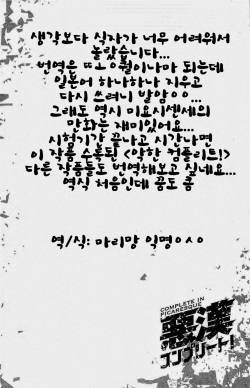 생각보다 식자가 너무 어려워서
놀랐습니다...
번역은 ㄸㅗㅇ 퀄이나마 되는데
일본어 하나하나 지우고
다시 쓰려니 발암ㅇㅇ...
그래도 역시 미요시센세의
만화는 재미있어요...
시험기가 끝나고 시간나면
이 작품 수록된 <악한 컴플리트!>
다른 작품들도 번역해보고 싶네요...
역식 처음인데 꿈도 큼
역/식: 마리망 익명ㅇㅅㅇ
COMPLETE IN
PICARESQUE
悪漢
コンプリート!